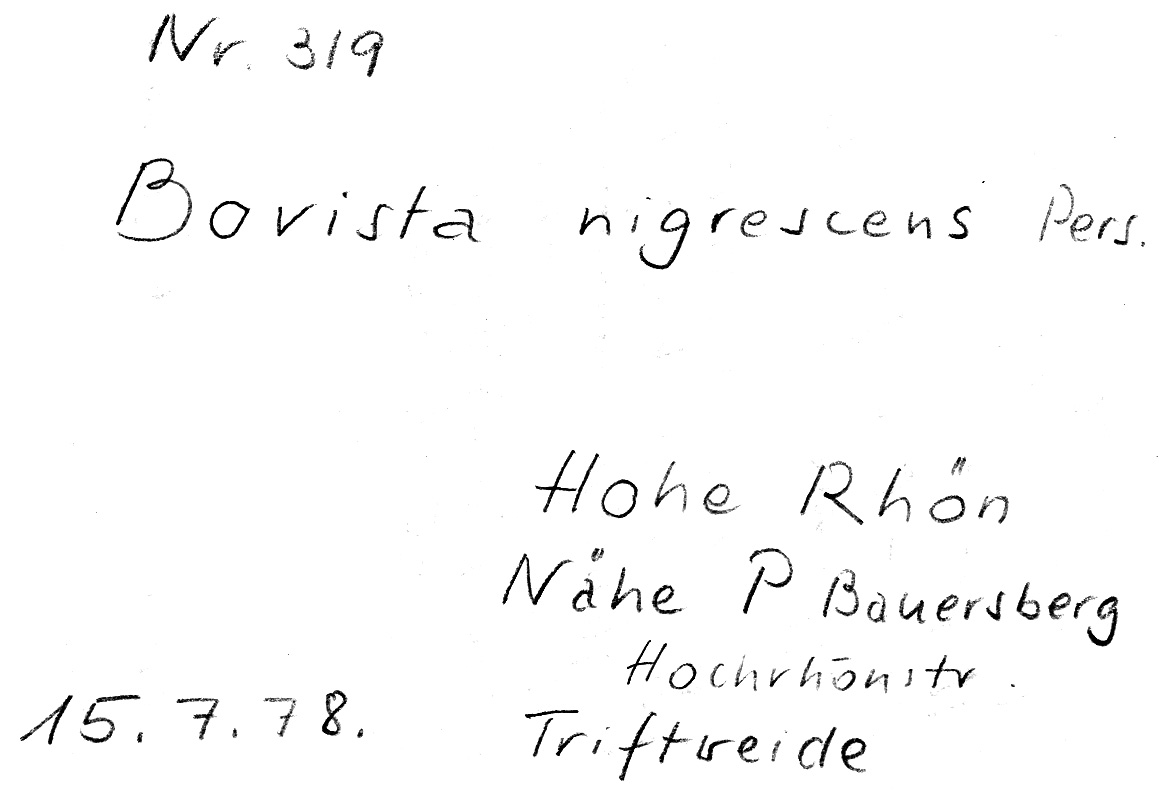 Nr. 319
Bovista nigrescens Pers.
Hohe Rhön
Nähe P Bauersberg
Hochrhönstr.
15.7.78. Triftweide